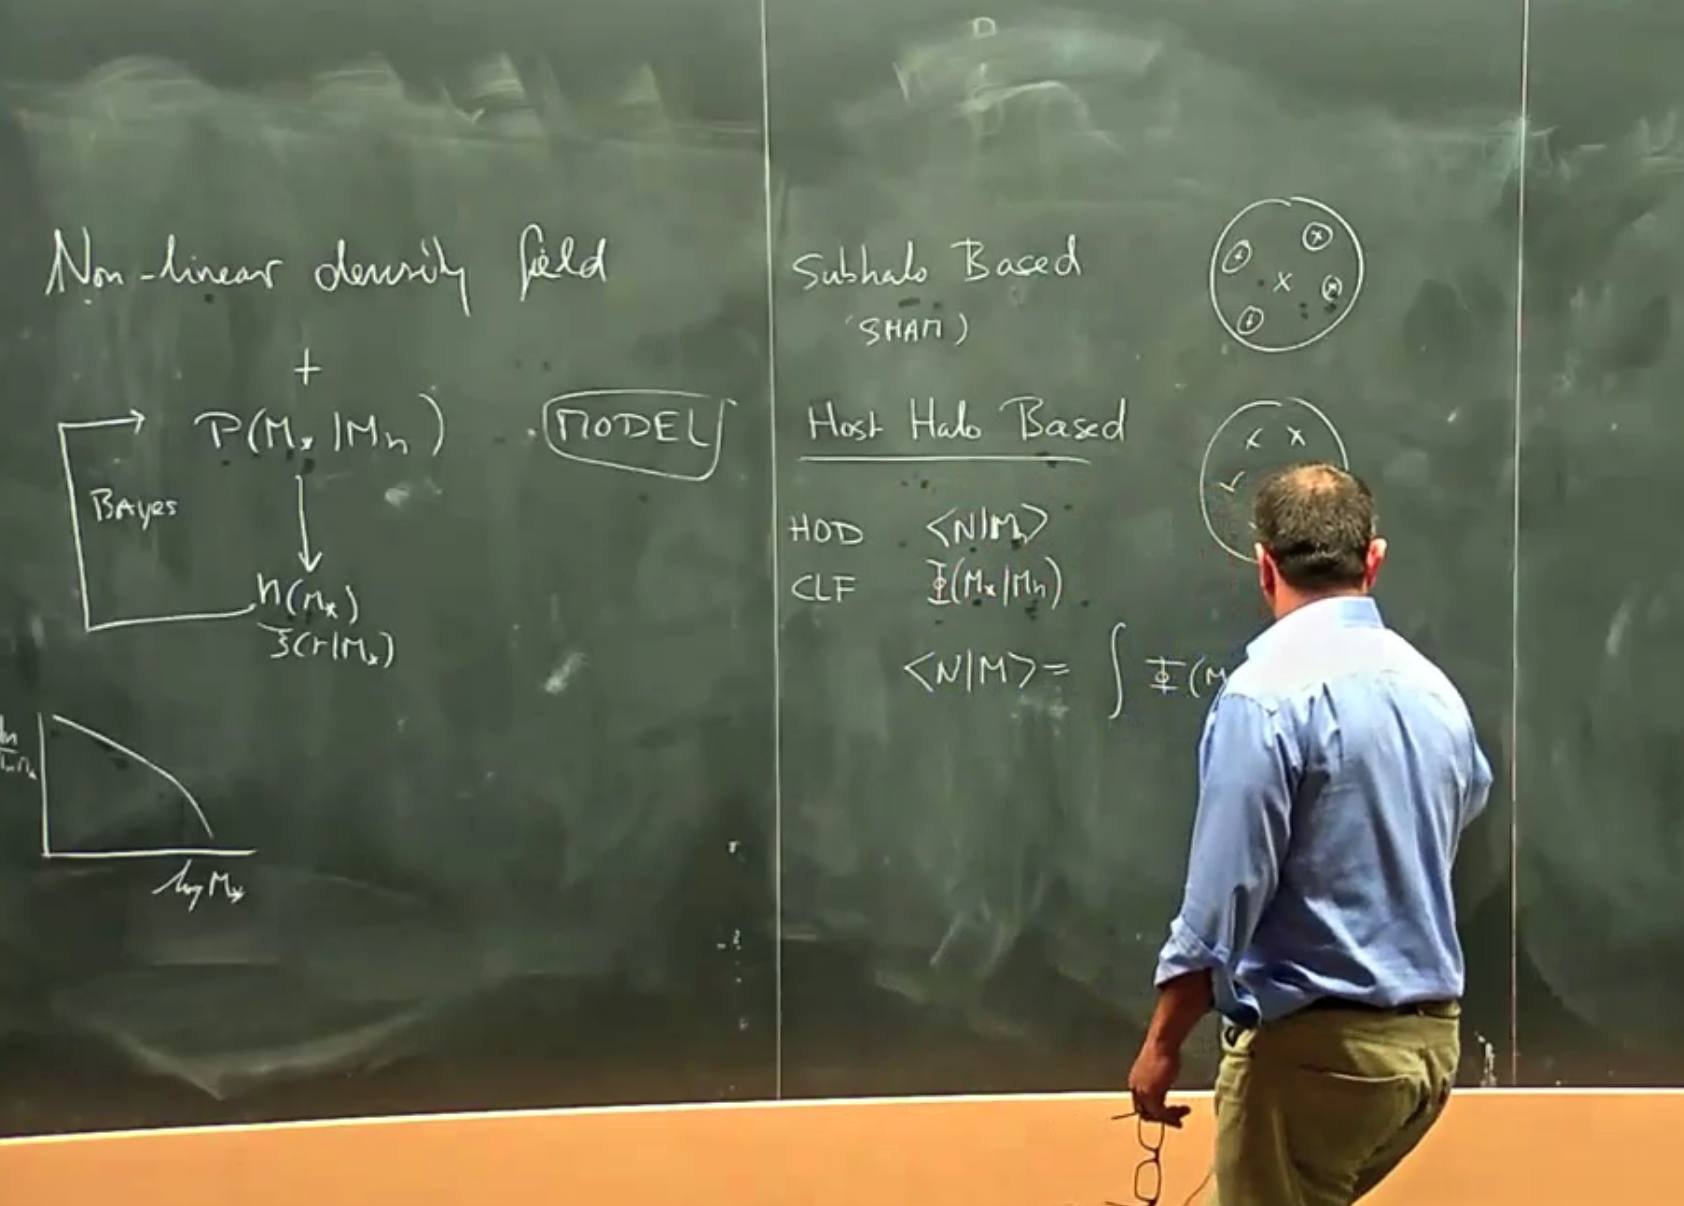 Non-linear density field
+
P(M* | Mh)
MODEL
Bayes
n(M*)
ξ(r|M*)
log M*
Subhalo Based
(SHAM)
Host Halo Based
HOD <N|Mh>
CLF Φ(M*|Mh)
<N|M> = ∫ Φ(M